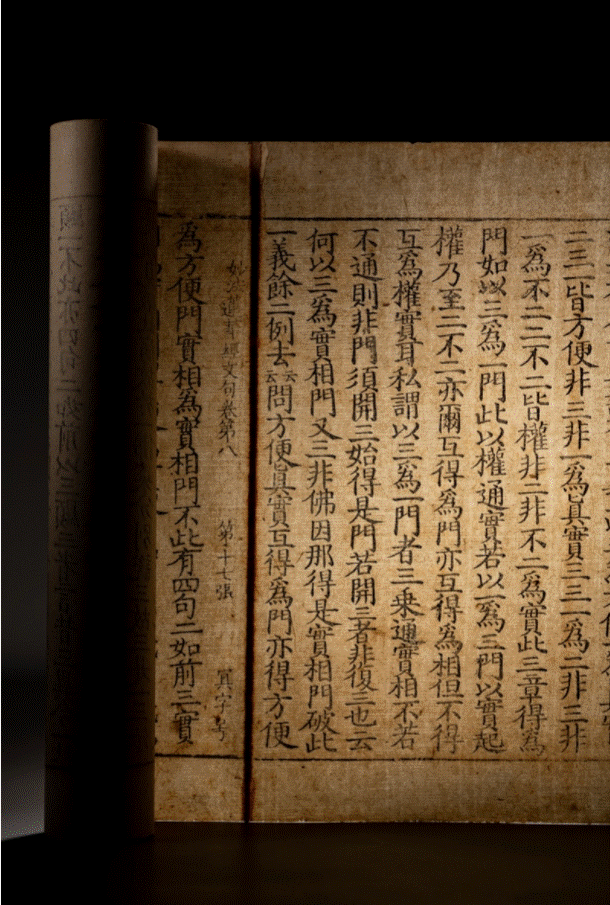 二三一皆方便非三非一爲真實三三一爲二非三非
一爲不二二不二皆權非二非不二爲實此三章得爲
門如以三爲一門此以權通實若以一爲三門以實起
權乃至二不二亦爾互得爲門亦互得爲相但不得
互爲權實耳私謂以三爲一門者三乘通實相不若
不通則非門須開三始得是門若開三者非復三也云
何以三爲實相門又三非佛因那得是實相門破此
一義餘二例去云云問方便真實互得爲門亦得方便
妙法蓮華經文句卷第八 第十七張 宜字号
爲方便門實相爲實相門不此有四句二如前三實
一不此亦四句二如前以三顯三者